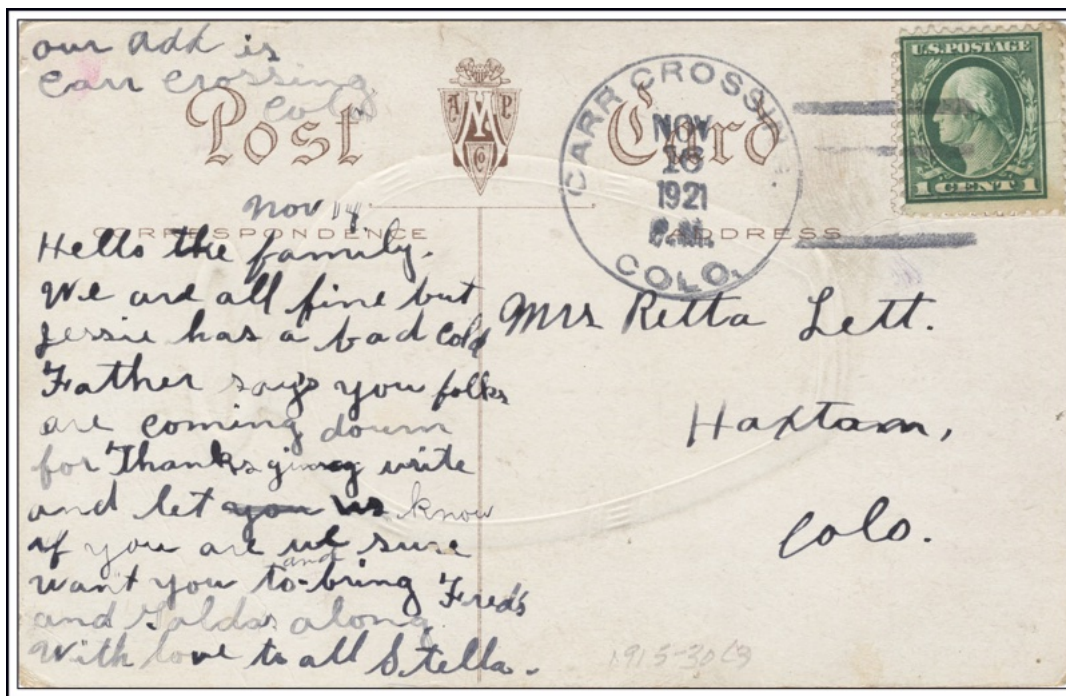 our add is
Carr Crossing
Colo
Post Card
A M P
Co
CARR CROSSING
NOV
16
1921
COLO.
U.S. POSTAGE
1 CENT 1
Nov
CORRESPONDENCE
ADDRESS
Hello the family.
We are all fine but
Jessie has a bad cold
Father says you folks
are coming down
for Thanksgiving write
and let you us know
if you are we sure
want you to and bring Fred's
and Goldas along
With love to all Stella.
Mrs Retta Lett.
Haxtum,
Colo.